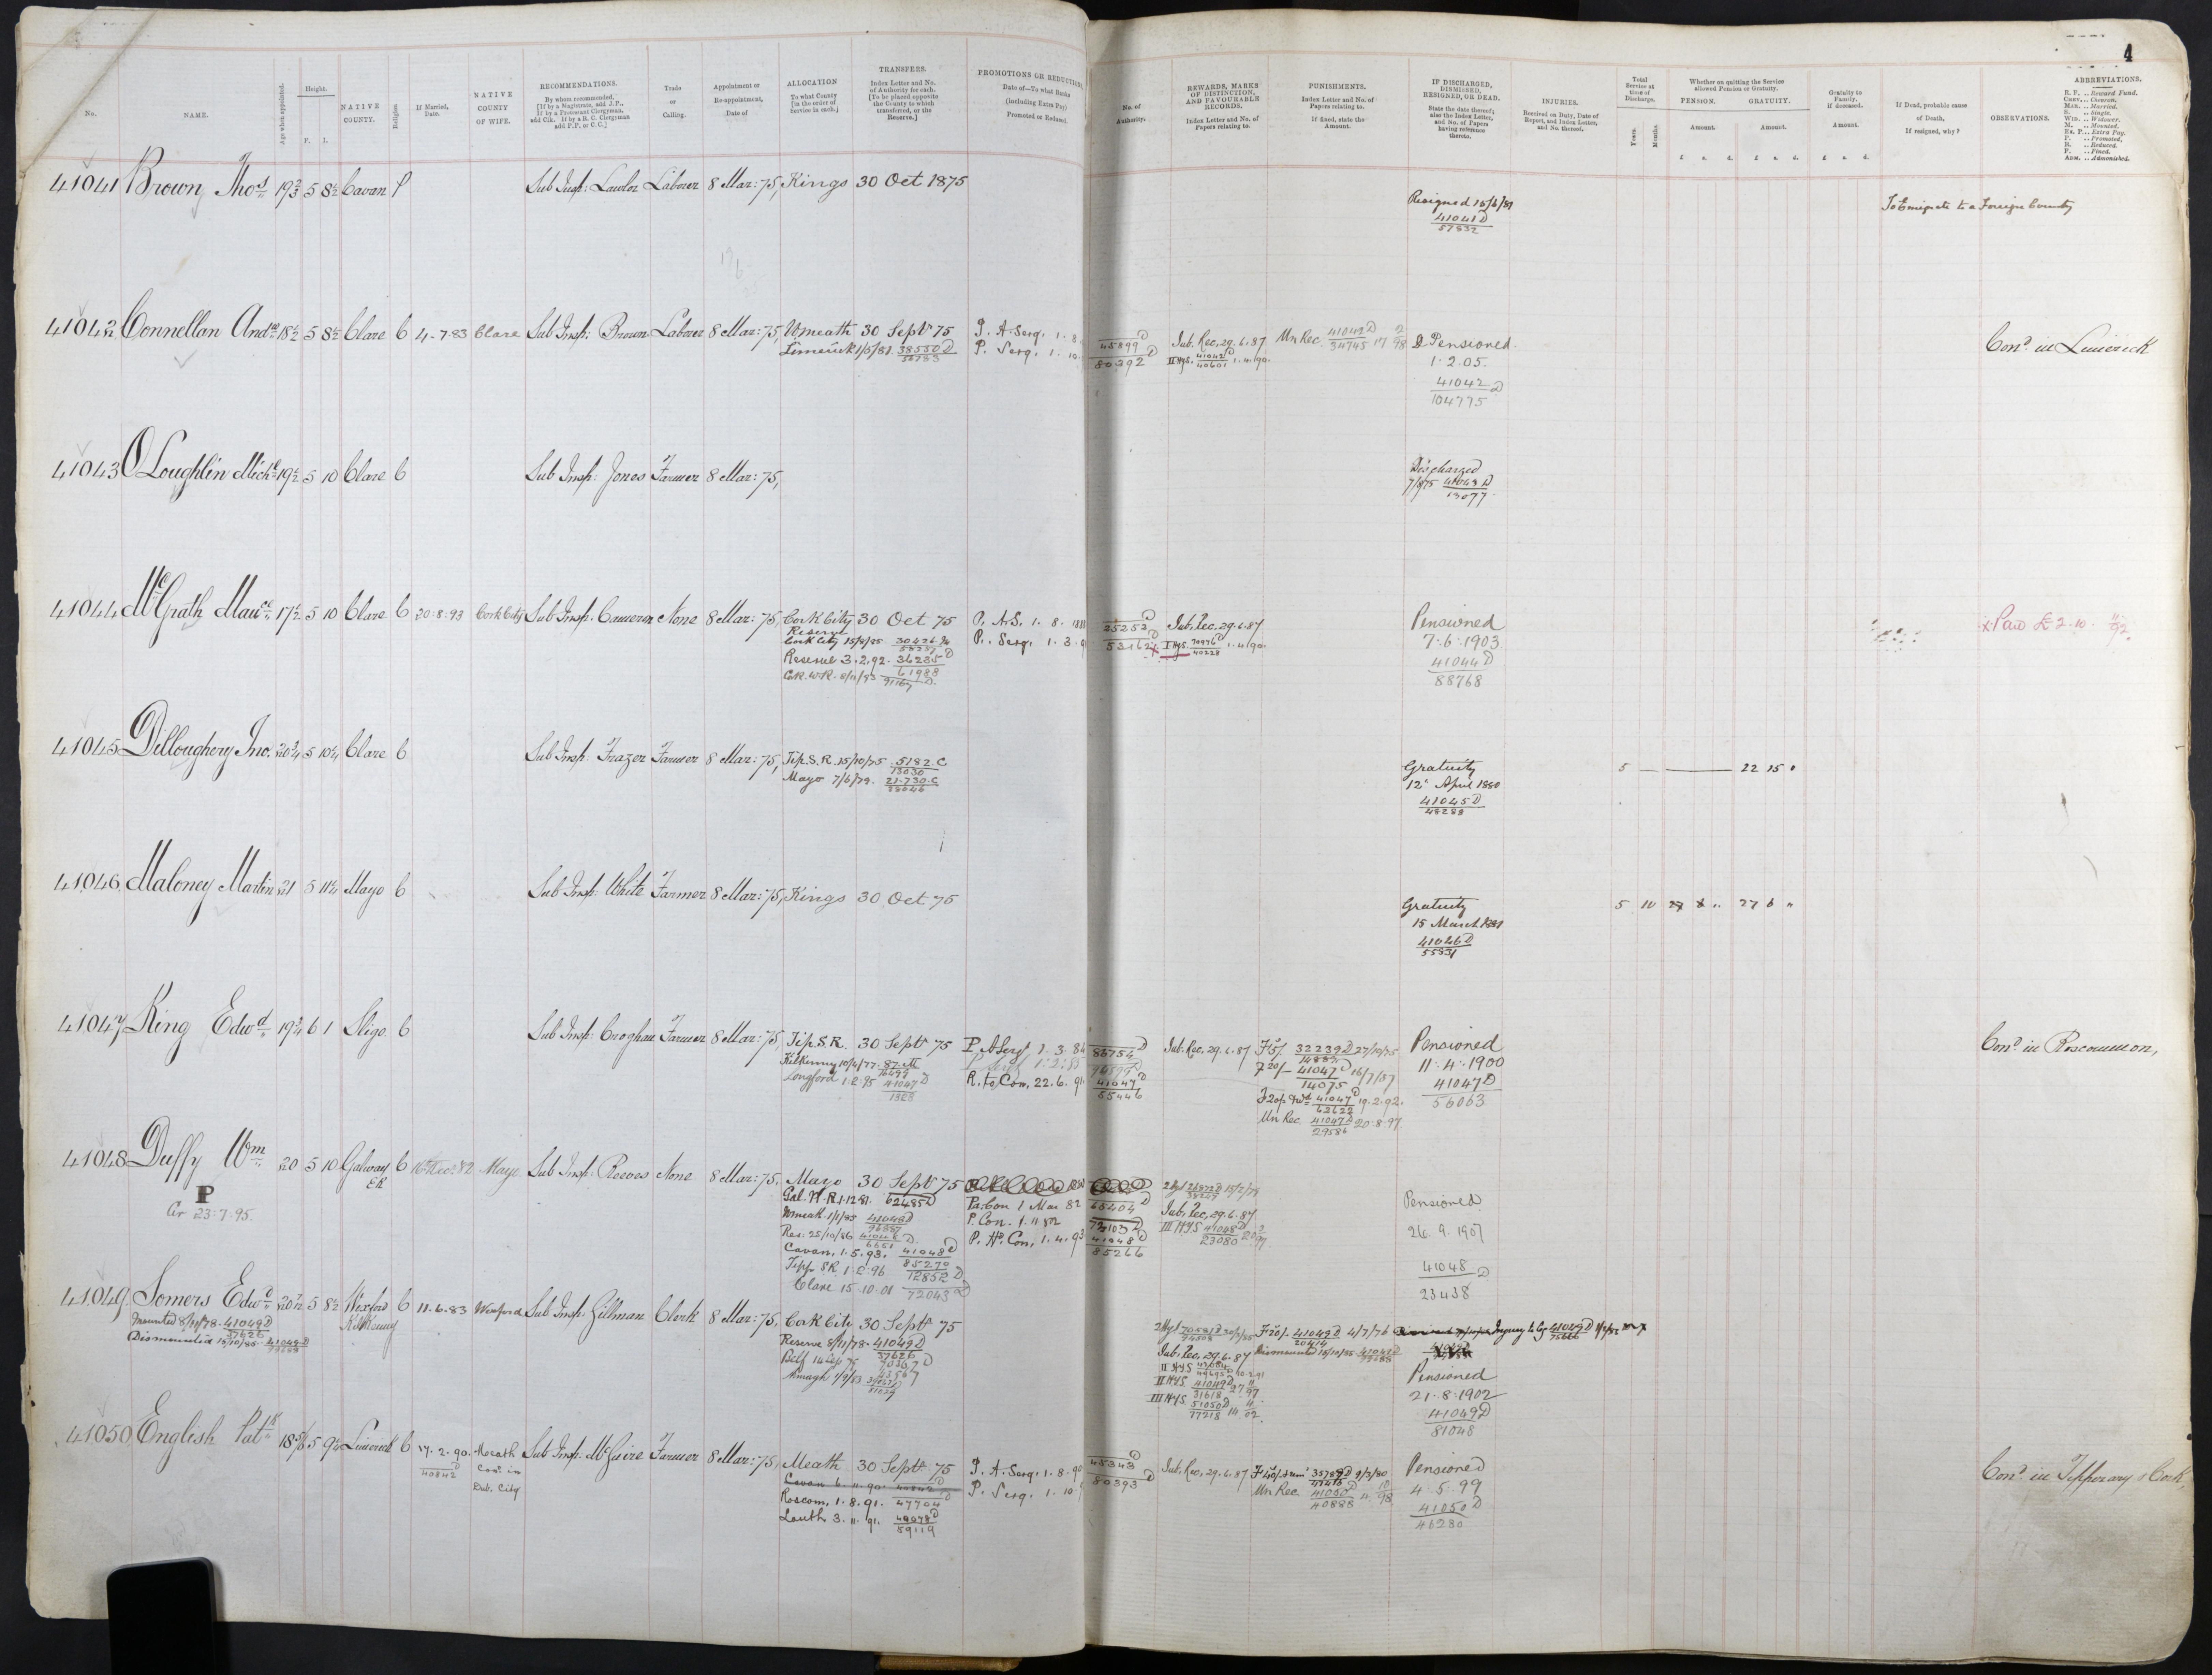 4
No.
NAME.
Age when appointed.
Height.
F. I.
NATIVE COUNTY.
Religion
If Married, Date.
NATIVE COUNTY OF WIFE.
RECOMMENDATIONS.
By whom recommended.
[If by a Magistrate, add J.P.,
If by a Protestant Clergyman,
add Clk. If by a R. C. Clergyman
add P.P. or C.C.]
Trade or Calling.
Appointment or Re-appointment, Date of
ALLOCATION
To what County
[in the order of
Service in each.]
TRANSFERS.
Index Letter and No.
of Authority for each.
[To be placed opposite
the County to which
transferred, or the
Reserve.]
PROMOTIONS OR REDUCTIONS,
Date of—To what Ranks
(including Extra Pay)
Promoted or Reduced.
No. of Authority.
REWARDS, MARKS
OF DISTINCTION,
AND FAVOURABLE
RECORDS.
Index Letter and No. of
Papers relating to.
PUNISHMENTS.
Index Letter and No. of
Papers relating to.
If fined, state the
Amount.
IF DISCHARGED,
DISMISSED,
RESIGNED, OR DEAD.
State the date thereof;
also the Index Letter,
and No. of Papers
having reference
thereto.
INJURIES.
Received on Duty, Date of
Report, and Index Letter,
and No. thereof.
Total
Service at
time of
Discharge.
Years. Months.
Whether on quitting the Service
allowed Pension or Gratuity.
PENSION. GRATUITY.
Amount. Amount.
£ s. d. £ s. d.
Gratuity to
Family,
if deceased.
Amount.
£ s. d.
If Dead, probable cause
of Death,
If resigned, why?
OBSERVATIONS.
ABBREVIATIONS.
R. F. .. Reward Fund.
Cert. .. Chevron.
Mar. .. Married.
S. .. Single.
Wid. .. Widower.
M. .. Mounted.
Ex. P... Extra Pay.
P. .. Promoted.
R. .. Reduced.
F. .. Fined.
Adm. .. Admonished.
41041 Brown Thos 19 2/3 5 8½ Cavan P Sub Insp: Lawlor Laborer 8 Mar: 75, Kings 30 Oct 1875
Resigned 15/6/81
41041 D
57832
To Emigrate to a Foreign Country
41042 Connellan Andw 18½ 5 8½ Clare C 4-7-83 Clare Sub Insp: Brown Laborer 8 Mar: 75, Wmeath 30 Sept 75
Limerick 1/5/81 38550 D
P. A. Serg. 1. 8.
P. Serg. 1. 10.
45899 D
80392 D
Sub. Rec. 29. 6. 87
II Hys. 41042 D 1. 4. 90.
40601
Un Rec 41042 D 17 2/98
34745
Pensioned
1. 2. 05.
41042 D
104775
Cond in Limerick
41043 O'Loughlin Michl 19½ 5 10 Clare C Sub Insp: Jones Farmer 8 Mar: 75,
Discharged
7/8/75 41043 D
13077
41044 McGrath Mauce 17½ 5 10 Clare C 20-8-93 Cork City Sub Insp: Cameron None 8 Mar: 75, Cork City 30 Oct 75
Reserve
Cork City 15/8/85 30426
Reserve 3. 2. 92. 36235 D
61988
Ck. W.R. 8/11/93 91167 D.
P. A.S. 1. 8. 1881
P. Serg. 1. 3. 9
25252 D
53162 D x
Sub. Rec. 29. 6. 87
I Hys. 1. 4. 90.
40228
Pensioned
7. 6. 1903
41044 D
88768
x Paid £2. 10. 11/92
41045 Dilloughery Jno. 20¾ 5 10¼ Clare C Sub Insp: Frazer Farmer 8 Mar: 75, Tip. S. R. 15/10/75. 5182. C
13030
Mayo 7/6/79. 21.730. C
28646
Gratuity
12th April 1880
41045 D
48283
5 — 22 15 "
41046 Maloney Martin 21 5 11¼ Mayo C Sub Insp: White Farmer 8 Mar: 75, Kings 30 Oct 75
Gratuity
15 March 1881
41046 D
55831
5 10 27 6 "
41047 King Edwd 19¾ 6 1 Sligo C Sub Insp: Croghan Farmer 8 Mar: 75, Tip. S.R. 30 Sept 75
Kilkenny 10/4/77. 87. M
Longford 1. 2. 95 41047 D
1328
P. A Sergt 1. 3. 84
R. to Con. 22. 6. 91
86754 D
41047 D
55446
Sub. Rec. 29. 6. 87
F 5/- 32239 D 27/10/75
F 20/- 41047 D 16/7/87
14075
F 20/- 41047 D 19. 2. 92.
62622
Un Rec. 41047 D 20. 8. 97.
29586
Pensioned
11. 4. 1900
41047 D
56063
Cond in Roscommon,
41048 Duffy Wm 20 5 10 Galway ER C 16 Dec. 82 Mayo Sub Insp: Reeves None 8 Mar: 75. Mayo 30 Sept 75
P
Cr 23. 7. 95.
Gal. W. R. 1. 12 81. 62485 D
Wmeath. 1/1/85 41048 D
96887
Res. 25/10/86 41048 D.
6651
Cavan, 1. 5. 93. 41048 D
85270
Tipp SR. 1. 2. 96 12852 D.
Clare 15. 10. 01 72043 D
Pa. Con 1 Mar 82
P. Con. 1. 11 82
P. Hd Con, 1. 4. 93
65404 D
72103 D
41048 D
85266
Sub. Rec. 29. 6. 87
III Hys 41048 D 20 2/97
23080
Pensioned
26. 9. 1907
41048 D
23438
41049 Somers Edwd 20 7/12 5 8½ Wexford Kilkenny C 11. 6. 83 Wexford Sub Insp: Gillman Clerk 8 Mar: 75. Cork City 30 Sept 75
Mounted 8/11/78. 41049 D
37626
Dismounted 15/10/85. 41049 D
79688
Reserve 8/11/78. 41049 D
37626
Belf 14 Sep 79
Armagh 1/9/83
Sub. Rec. 29. 6. 87
II Hys 41049 D 27 11/97
31618
III Hys 51050 D 14 4/02.
77218
F 20/- 41049 D 4/7/76
20414
Dismounted 15/10/85 41049 D
79688
Injury to
Pensioned
21. 8. 1902
41049 D
81048
41050 English Patk 18 5/6 5 9¼ Limerick C 17. 2. 90. Meath Sub Insp: McGuire Farmer 8 Mar: 75, Meath 30 Sept. 75
40842 D
Con. in
Dub. City
Cavan 6. 11. 90. 40842 D
Roscom, 1. 8. 91. 47704 D
Louth 3. 11. 91. 41078 D
59119
P. A. Serg. 1. 8. 90
P. Serg. 1. 10
45343 D
80393 D
Sub. Rec. 29. 6. 87
F 40/- 35789 D 9/3/80
Un Rec. 41050 D 11 10/98
40888
Pensioned
4. 5. 99
41050 D
46280
Cond in Tipperary & Cork,